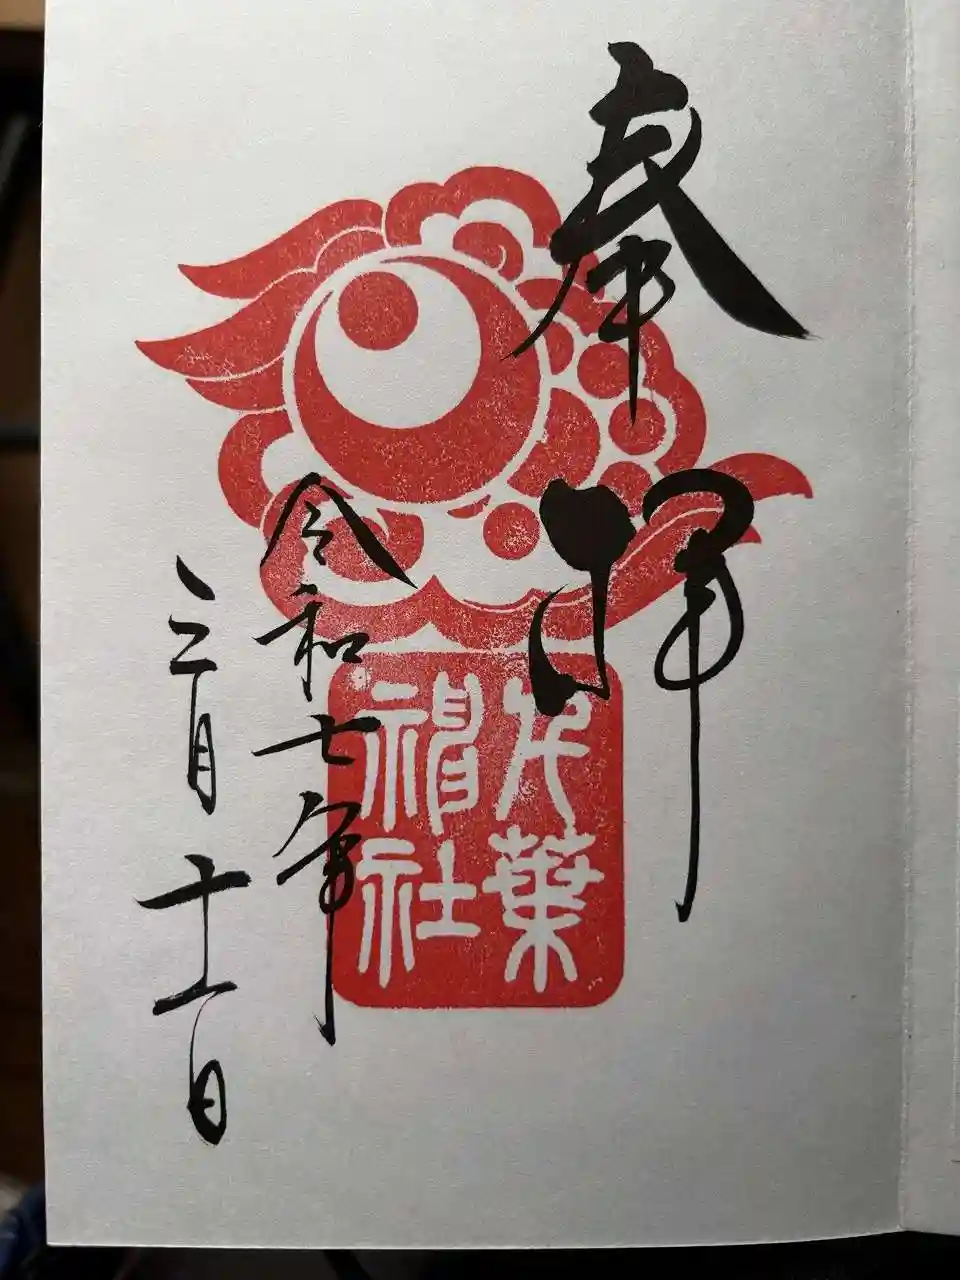 奉拝
千葉
神社
令和七年
三月十一日